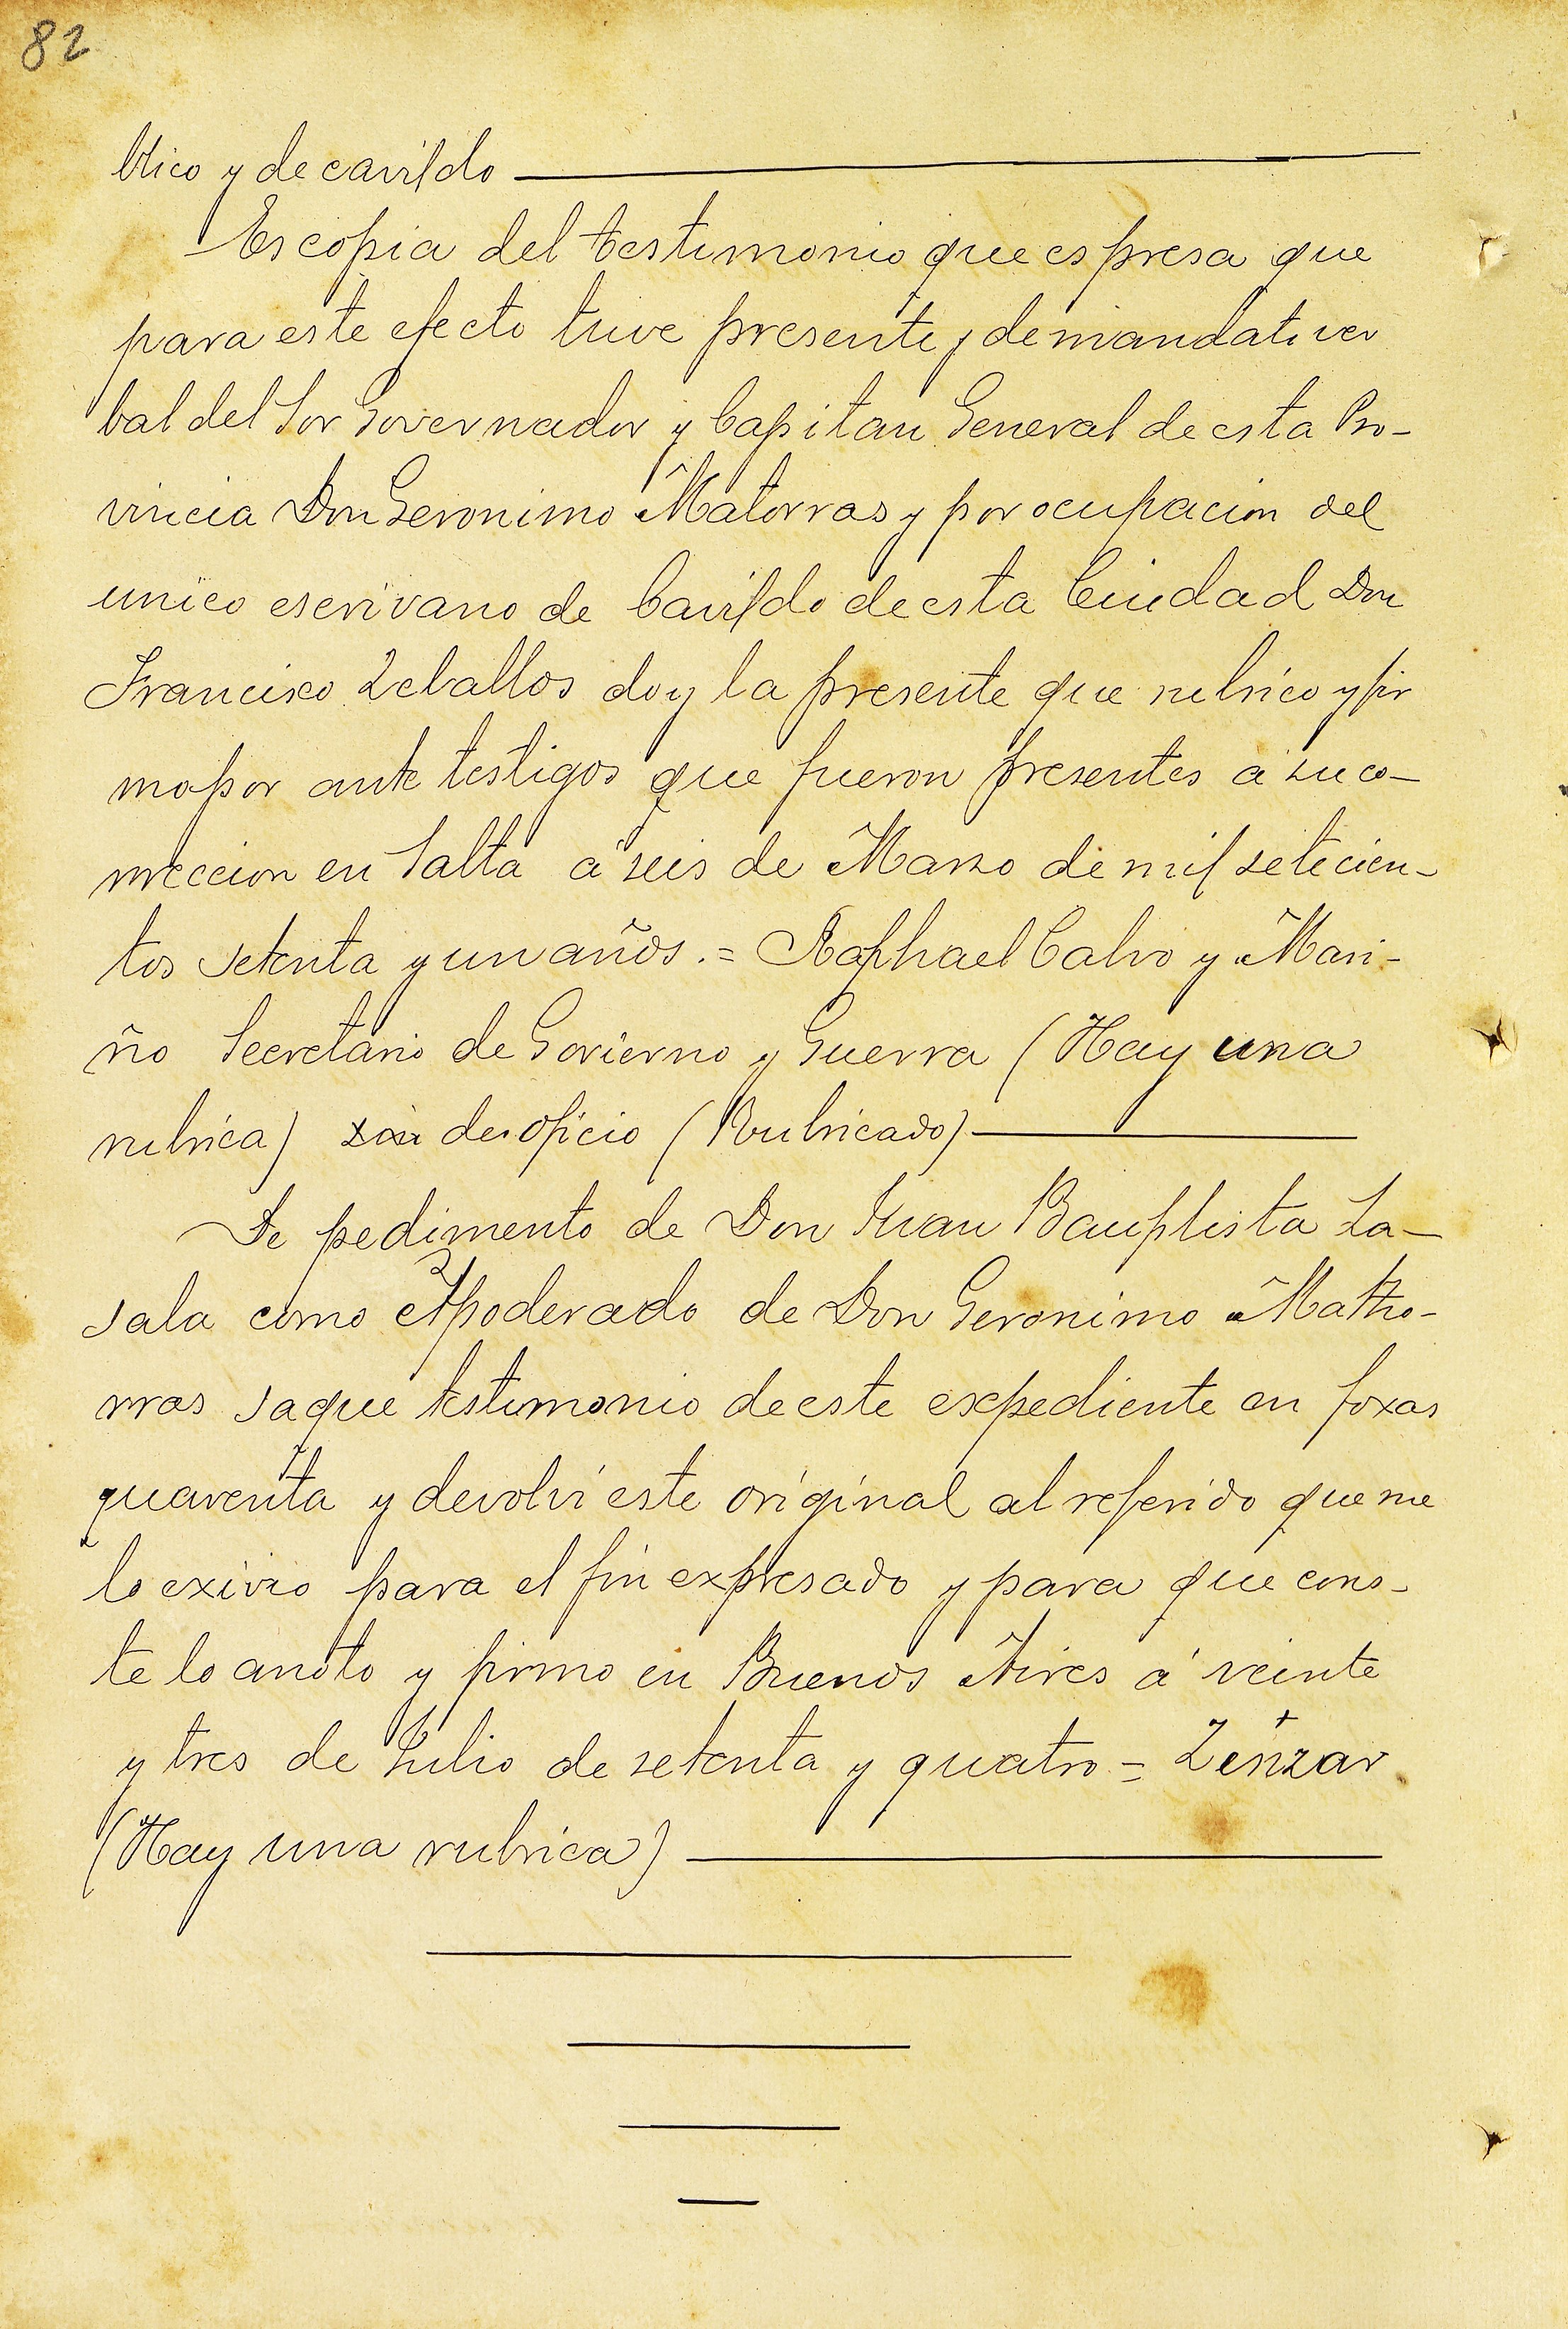 82
blico y de cavildo
Es copia del testimonio que espresa que
para este efecto tuve presente y de mandato ver
bal del Sor Governador y Capitan General de esta Pro-
vincia Don Geronimo Matorras y por ocupacion del
unico escrivano de Cavildo de esta Ciudad Don
Francisco Zeballos doy la presente que rubrico y fir
mo por ante testigos que fueron presentes á su co-
rreccion en Salta á seis de Marzo de mil setecien-
tos setenta y un años. = Raphael Calvo y Mari-
ño Secretario de Govierno y Guerra (Hay una
rubrica) de oficio (Rubricado)
De pedimento de Don Juan Bauptista La-
sala como Apoderado de Don Geronimo Matho-
rras saque testimonio de este expediente en foxas
quarenta y devolví este original al referido que me
lo exivio para el fin expresado y para que cons-
te lo anoto y firmo en Buenos Aires á veinte
y tres de Julio de setenta y quatro = Zenzar
(Hay una rubrica)